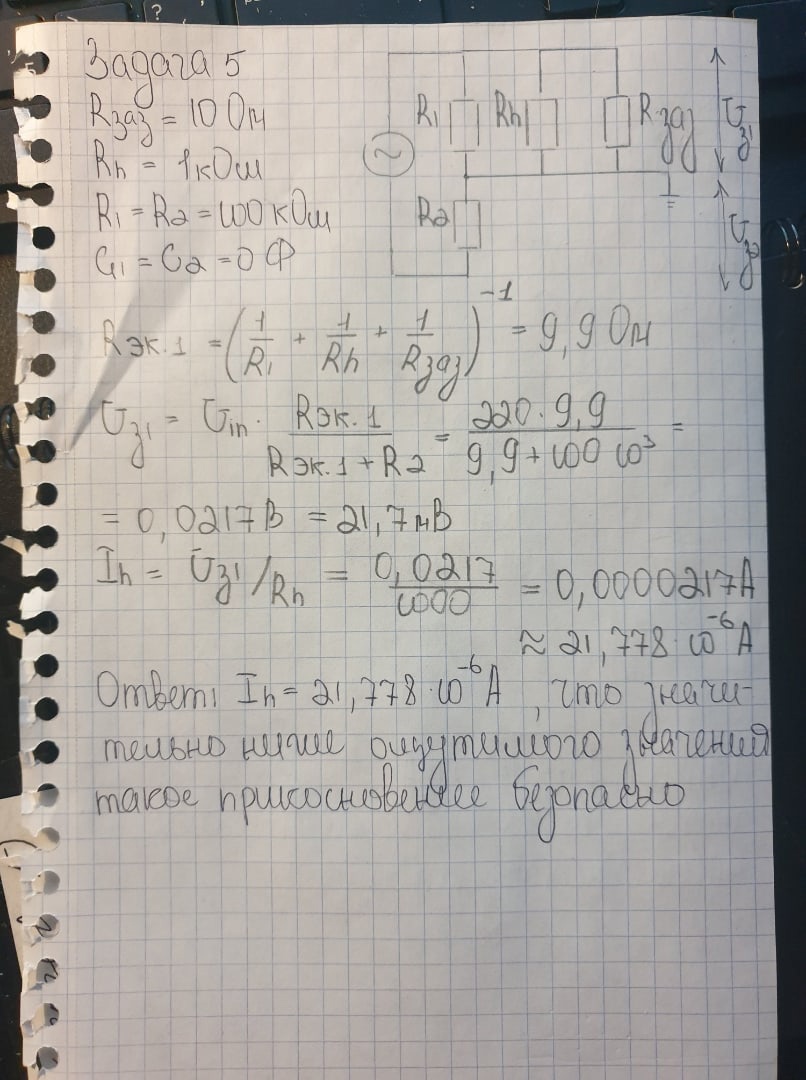 Задача 5
Rзаз = 10 Ом
Rh = 1кОм
R1 = R2 = 100 кОм
C1 = C2 = 0 Ф
R1 Rh Rзаз Uз1
R2 Uз2
Rэк.1 = (1/R1 + 1/Rh + 1/Rзаз)^-1 = 9,9 Ом
Uз1 = Uin · Rэк.1/(Rэк.1 + R2) = 220 · 9,9/(9,9 + 100 10^3) =
= 0,0217В = 21,7мВ
Ih = Uз1/Rh = 0,0217/1000 = 0,0000217А
≈ 21,778 · 10^-6 А
Ответ: Ih = 21,778 · 10^-6 А, что значи-
тельно ниже ощутимого значения
такое прикосновение безопасно